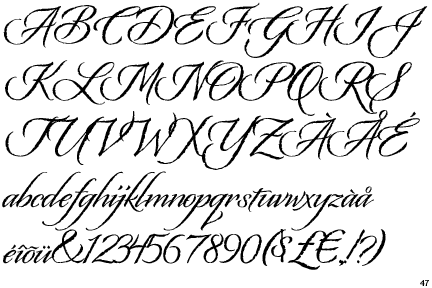 ABCDEFGHIJ
KLMNOPQRS
TUVWXYZÀÅÉ
abcdefghijklmnopqrstuvwxyzàå
éîõü&1234567890($£€.,!?)
47